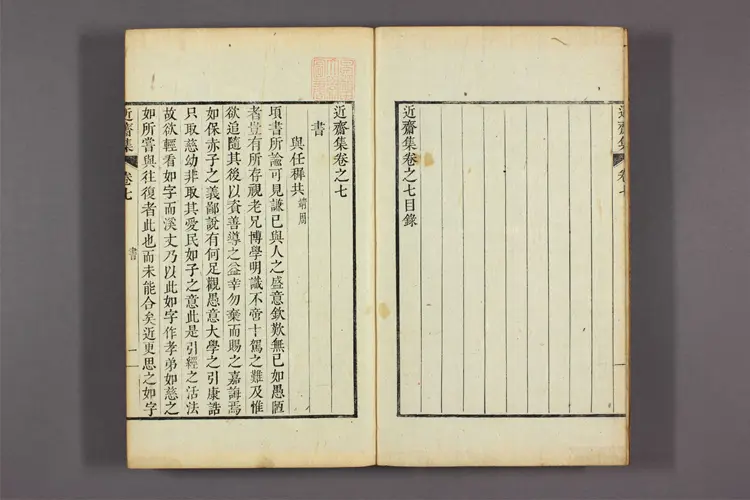 近齋集 卷七
近齋集卷之七目錄
近齋集卷之七
書
與任穉共 靖周
頃書所論可見謙己與人之盛意欽歎無已如愚陋
者豈有所存視老兄博學明識不啻十駕之難及惟
欲追隨其後以資善導之益幸勿棄而賜之嘉誨焉
如保赤子之義鄙說有何足觀愚意大學之引康誥
只取慈幼非取其愛民如子之意此是引經之活法
故欲輕看如字而溪丈乃以此如字作孝弟如慈之
如所嘗與往復者此也而未能合矣近更思之如字
近齋集 卷七 書 一